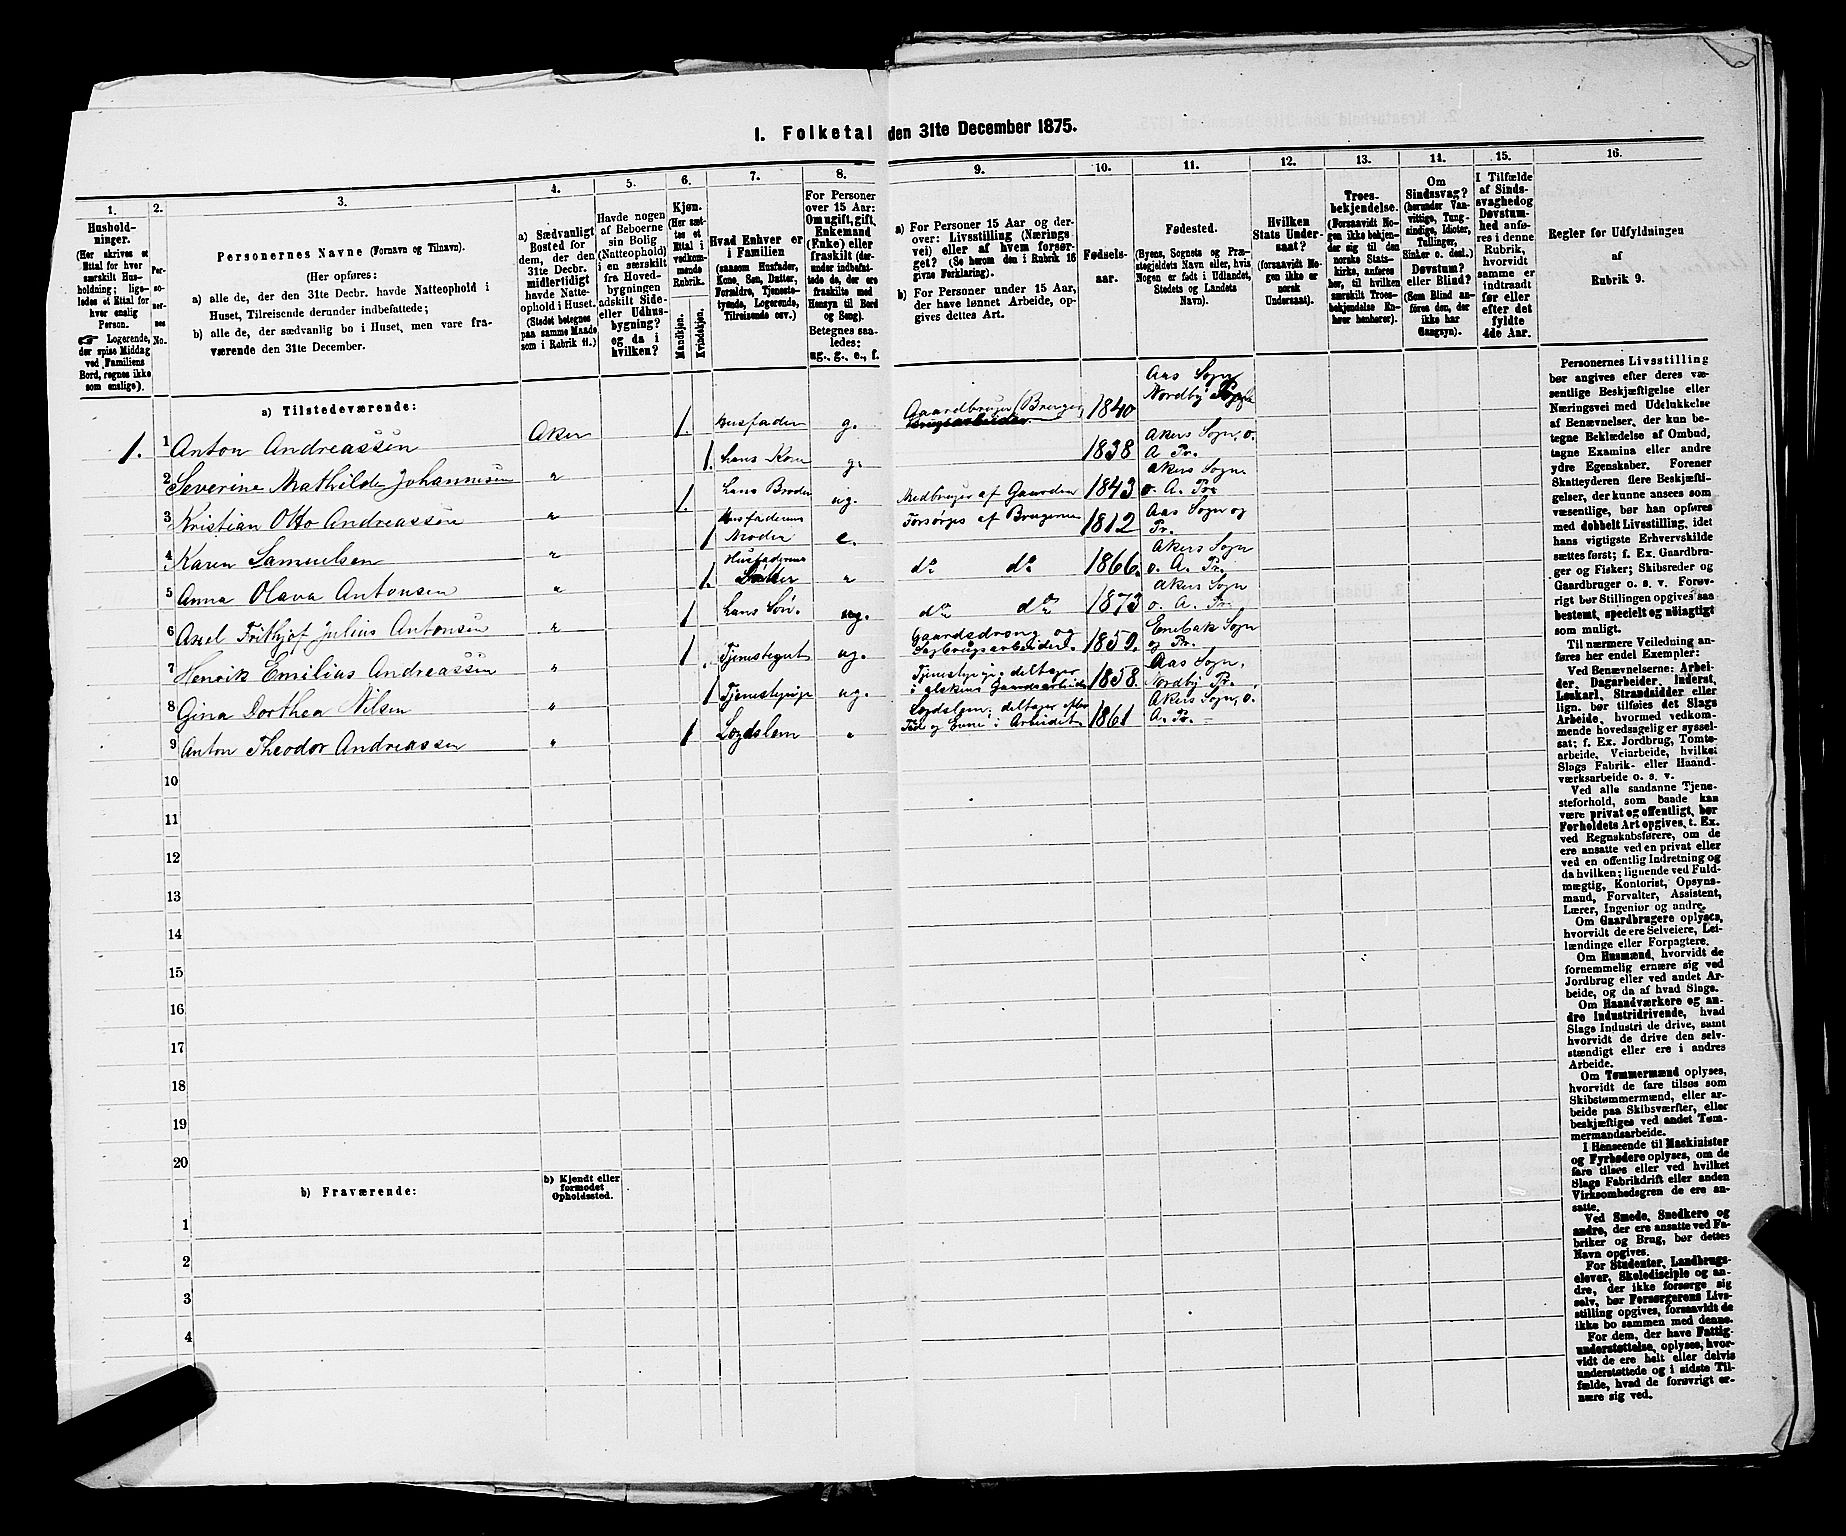 I. Folketal den 31te December 1875.
1.
Hushold-
ninger.
(Her skrives et
Ettal for hver
særskilt Hus-
holdning; lige-
ledes et Ettal for
hver enslig
Person.
☞ Logerende,
der spise Middag
ved Familiens
Bord, regnes ikke
som enslige).
2.
Per-
so-
ner-
nes
No.
3.
Personernes Navne (Fornavn og Tilnavn).
(Her opføres:
a) alle de, der den 31te Decbr. havde Natteophold i
Huset, Tilreisende derunder indbefattede;
b) alle de, der sædvanlig bo i Huset, men vare fra-
værende den 31te December.
4.
a) Sædvanligt
Bosted for
dem, der den
31te Decbr.
midlertidigt
havde Natte-
ophold i Huset.
(Stedet betegnes
paa samme Maade
som i Rubrik 11.)
5.
Havde nogen
af Beboerne
sin Bolig
(Natteophold)
i en særskilt
fra Hoved-
bygningen
adskilt Side-
eller Udhus-
bygning?
og da i
hvilken?
6.
Kjøn.
(Her sæt-
tes et
Ettal i
vedkom-
mende
Rubrik.
Mandkjøn.
Kvindekjøn.
7.
Hvad Enhver er
i Familien
(saasom Husfader,
Kone, Søn, Datter,
Forældre, Tjeneste-
tyende, Logerende,
Tilreisende osv.)
8.
For Personer
over 15 Aar:
Om ugift, gift,
Enkemand
(Enke) eller
fraskilt (der-
under indbefat-
tede de, der ere
fraskilte med
Hensyn til Bord
og Seng).
Betegnes saa-
ledes:
ug., g., e., f.
9.
a) For Personer 15 Aar og der-
over: Livsstilling (Nærings-
vei) eller af hvem forsør-
get? (Se herom den i Rubrik 16
givne Forklaring).
b) For Personer under 15 Aar,
der have lønnet Arbeide, op-
gives dettes Art.
10.
Fødsels-
aar.
11.
Fødested.
(Byens, Sognets og Præ-
stegjeldets Navn eller, hvis
Nogen er født i Udlandet,
Stedets og Landets
Navn).
12.
Hvilken
Stats Under-
saat?
(forsaavidt No-
gen ikke er
norsk
Undersaat).
13.
Troes-
bekjendelse.
(Forsaavidt No-
gen ikke bekjen-
der sig til den
norske Stats-
kirke, anføres
her, til hvilken
særskilt Troes-
bekjendelse En-
hver henhører).
14.
Om
Sindssvag?
(herunder Van-
vittige, Tung-
sindige, Idioter,
Tullinger,
Sinker o. desl.)
Døvstum?
eller Blind?
(Som Blind an-
føres den, der
ikke har
Gangsyn).
15.
I Tilfælde
af Sinds-
svaghed og
Døvstum-
hed anfø-
res i denne
Rubrik,
hvorvidt
samme er
indtraadt
før eller
efter det
fyldte
4de Aar.
16.
Regler for Udfyldningen
af
Rubrik 9.
a) Tilstedeværende:
1. 1 Anton Andreassen Aker 1. Husfader g. Gaardbruger (Bruger 1840 Aas Sogn Nordby
2 Severine Mathilde Johannesen " 1. hans Kone g. 1838 Akers Sogn, o. A. Pr.
3 Kristian Otto Andreassen " 1. hans Broder ug. Medbruger af Gaarden 1843 Akers Sogn o. A. Pr.
4 Karen Samuelsen " 1 Husfaderens Moder e. Forsørges af Brugerne 1812 Aas Sogn og Pr.
5 Anna Olava Antonsen " 1. Husfaderens Datter " do do 1866. Akers Sogn o. A. Pr.
6 Axel Frithjof Julius Antonsen " 1 hans Søn. do do 1873 Akers Sogn o. A. Pr.
7 Henrik Emilius Andreassen " 1 Tjenestegut ug. Gaardsdreng og Sagbrugsarbeider. 1859. Enebak Sogn og Pr.
8 Gina Dorthea Nilsen " 1 Tjenestepige ug. Tjenestepige; deltager i alskens Gaardsarbeide 1858. Aas Sogn, Nordby Pr.
9 Anton Theodor Andreassen " 1 Lægdslem " Lægdslem, deltager efter Tid og Evne i Arbeidet 1861 Akers Sogn, o. A. Pr.
10
11
12
13
14
15
16
17
18
19
20
b) Fraværende:
b) Kjendt eller
formodet
Opholdssted.
1
2
3
4
Personernes Livsstilling
bør angives efter deres væ-
sentlige Beskjæftigelse eller
Næringsvei med Udelukkelse
af Benævnelser, der kun be-
tegne Beklædelse af Ombud,
tagne Examina eller andre
ydre Egenskaber. Forener
Skatteyderen flere Beskjæfti-
gelser, der kunne ansees som
væsentlige, bør han opføres
med dobbelt Livsstilling, idet
hans vigtigste Erhvervskilde
sættes først; f. Ex. Gaardbru-
ger og Fisker; Skibsreder og
Gaardbruger o. s. v. Forøv-
rigt bør Stillingen opgives saa
bestemt, specielt og nøiagtigt
som muligt.
Til nærmere Veiledning an-
føres her endel Exempler:
Ved Benævnelserne: Arbei-
der, Dagarbeider, Inderst,
Løskarl, Strandsidder eller
lign. bør tilføies det Slags
Arbeide, hvormed vedkom-
mende hovedsagelig er syssel-
sat; f. Ex. Jordbrug, Tomte-
arbeide, Veiarbeide, hvilket
Slags Fabrik- eller Haand-
værksarbeide o. s. v.
Ved alle saadanne Tjene-
steforhold, som baade kan
være privat og offentligt, bør
Forholdets Art opgives, t. Ex.
ved Regnskabsførere, om de
ere ansatte ved en privat eller
ved en offentlig Indretning og
da hvilken; lignende ved Fuld-
mægtig, Kontorist, Opsyns-
mand, Forvalter, Assistent,
Lærer, Ingeniør og andre.
Om Gaardbrugere oplyses,
hvorvidt de ere Selveiere, Lei-
lændinge eller Forpagtere.
Om Husmænd, hvorvidt de
fornemmelig ernære sig ved
Jordbrug eller ved andet Ar-
beide, og da af hvad Slags.
Om Haandværkere og an-
dre Industridrivende, hvad
Slags Industri de drive, samt
hvorvidt de drive den selv-
stændigt eller ere i andres
Arbeide.
Om Tømmermænd oplyses,
hvorvidt de fare tilsøs som
Skibstømmermænd, eller ar-
beide paa Skibsværfter, eller
beskjæftiges ved andet Tøm-
mermandsarbeide.
I Henseende til Maskinister
og Fyrbødere oplyses, om de
fare tilsøs eller ved hvilket
Slags Fabrikdrift eller anden
Virksomhedsgren de ere an-
satte.
Ved Smede, Snedkere og
andre, der ere ansatte ved Fa-
briker og Brug, bør dettes
Navn opgives.
For Studenter, Landbrugs-
elever, Skoledisciple og an-
dre, der ikke forsørge sig
selv, bør Forsørgerens Livs-
stilling opgives, forsaavidt de
ikke bo sammen med denne.
For dem, der have Fattig-
understøttelse, oplyses, hvor-
vidt de ere helt eller delvis
understøttede og i sidste Til-
fælde, hvad de forøvrigt er-
nære sig ved.